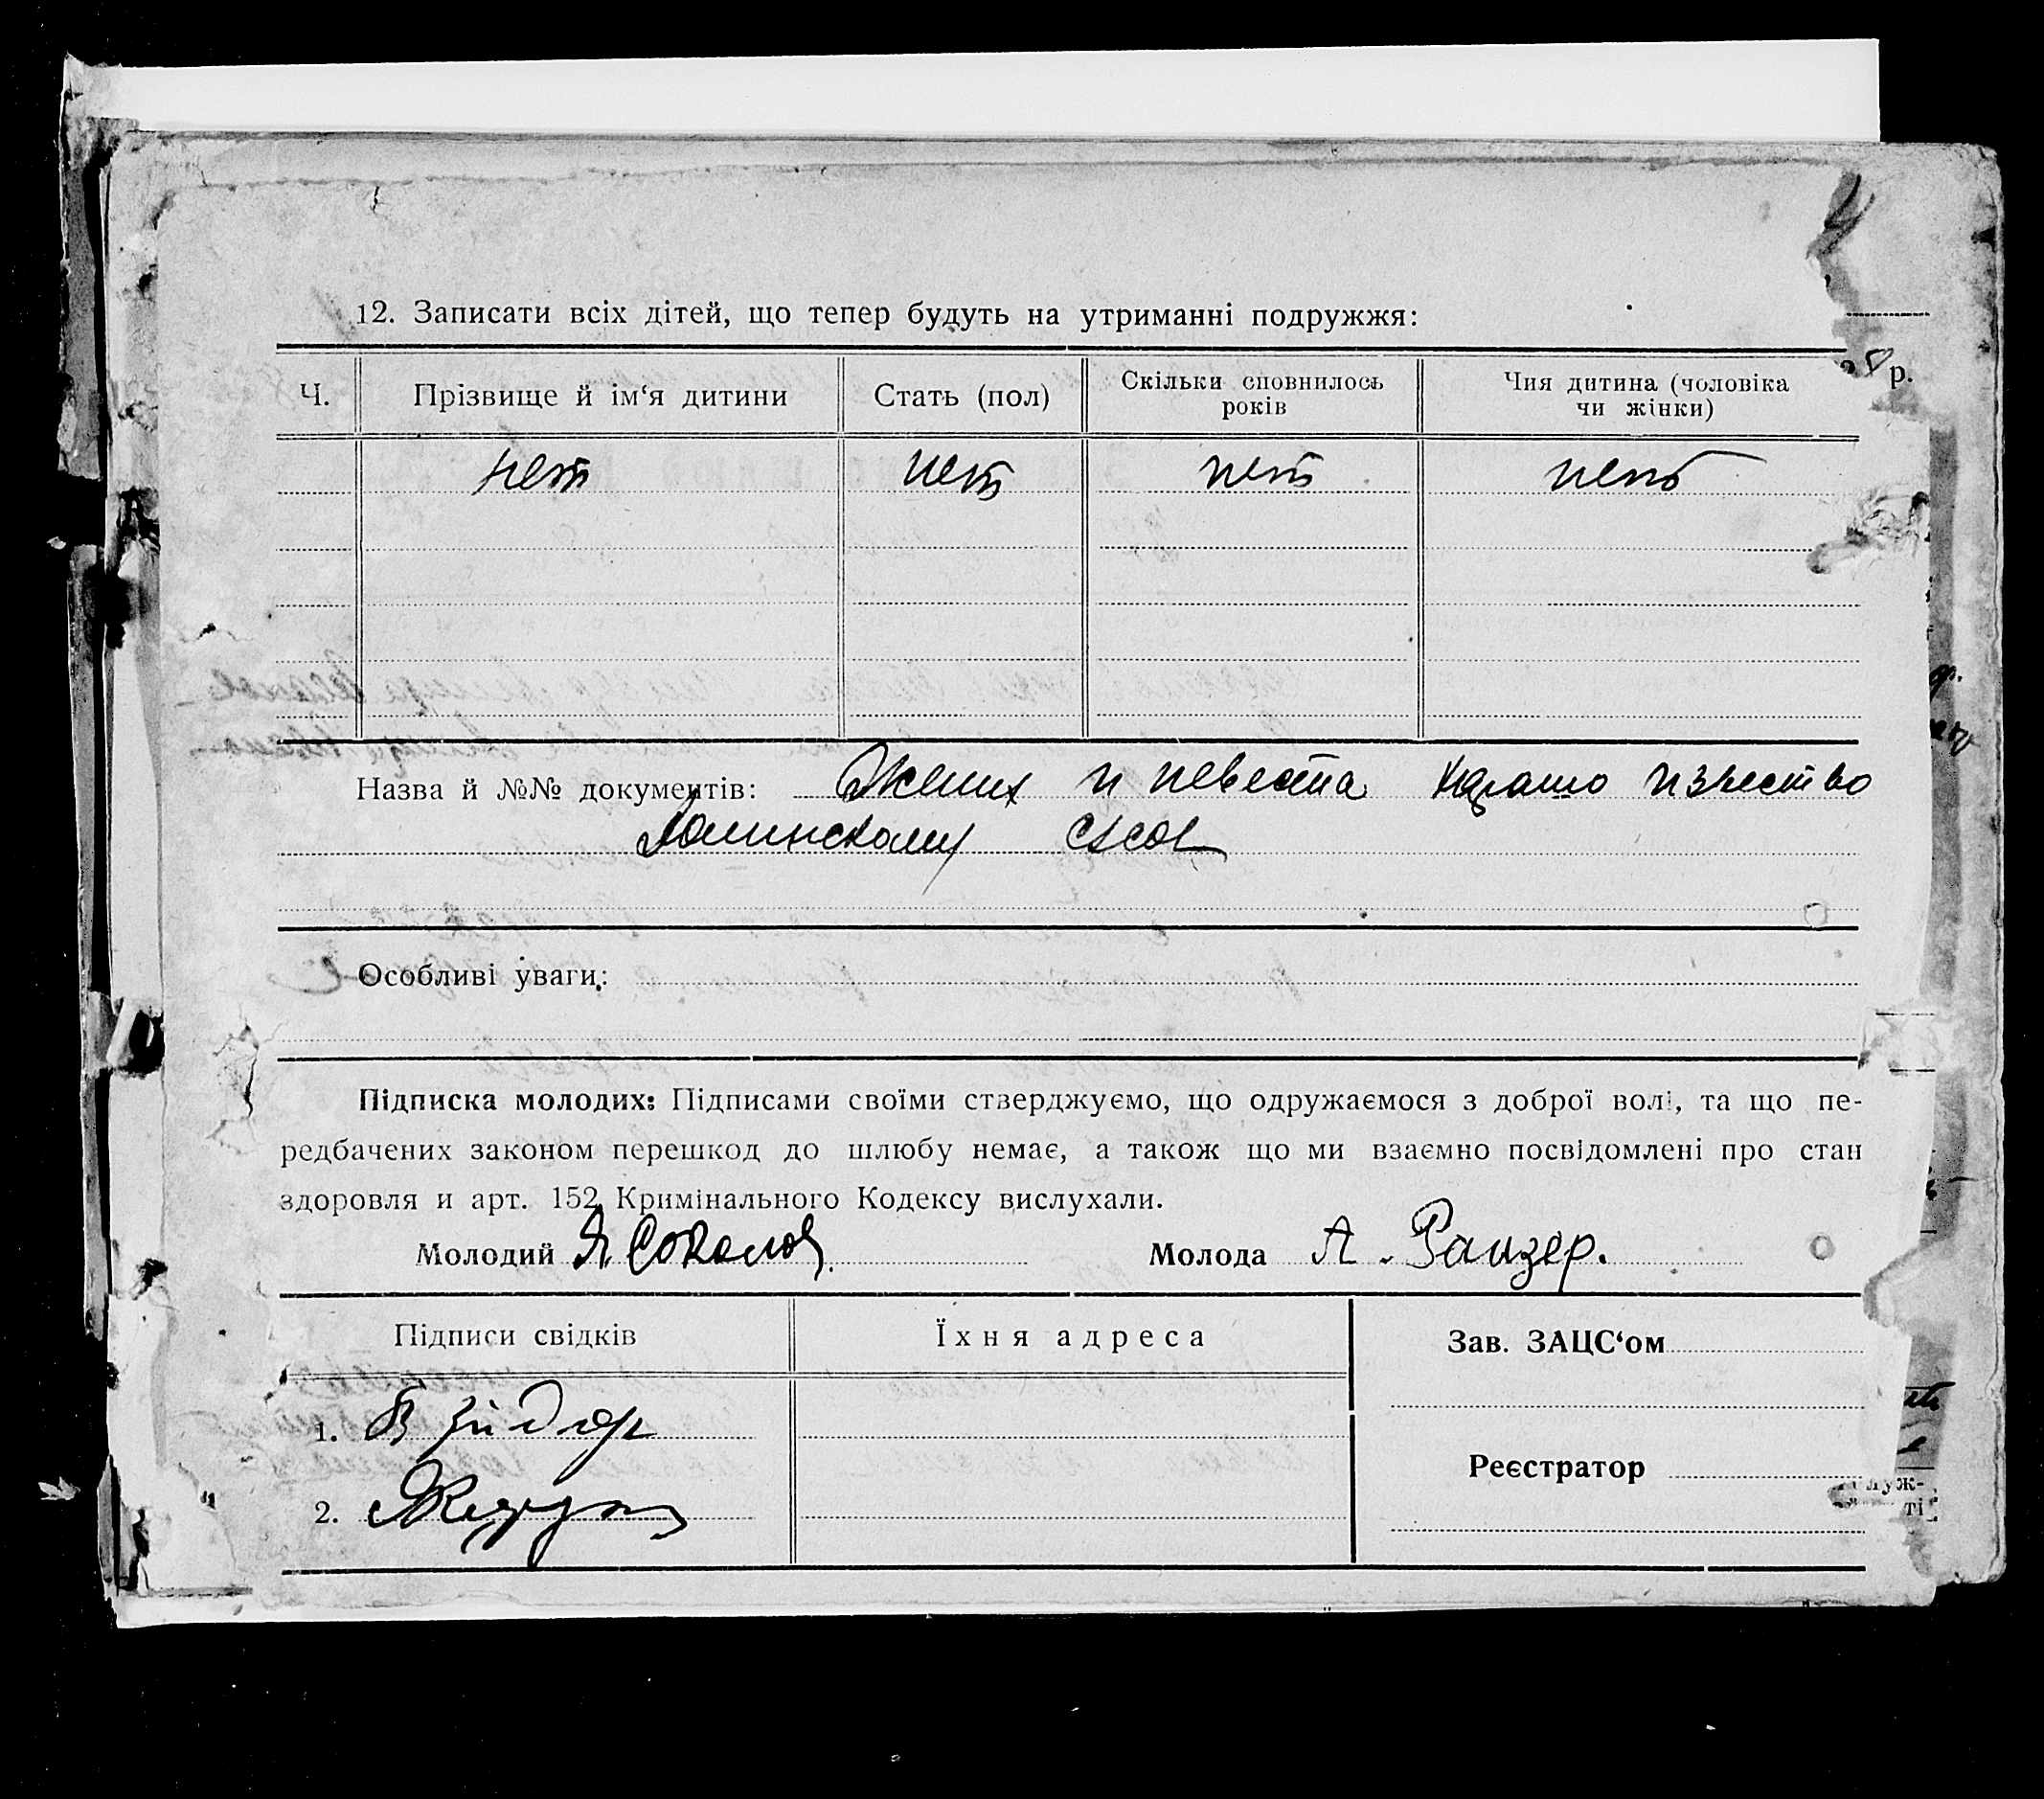 12. Записати всіх дітей, що тепер будуть на утриманні подружжя:
Ч. Прізвище й ім‘я дитини Стать (пол) Скільки сповнилось років Чия дитина (чоловіка чи жінки)
р.
нет нет нет нет
Назва й №№ документів: Жених и невеста хорошо известно
сксов
Особливі уваги:
Підписка молодих: Підписами своїми стверджуємо, що одружаємося з доброї волі, та що пе-
редбачених законом перешкод до шлюбу немає, а також що ми взаємно посвідомлені про стан
здоровля и арт. 152 Кримінального Кодексу вислухали.
Молодий Я Соколов. Молода А. Ранзер.
Підписи свідків Їхня адреса Зав. ЗАЦС‘ом
1.
Реєстратор
2.